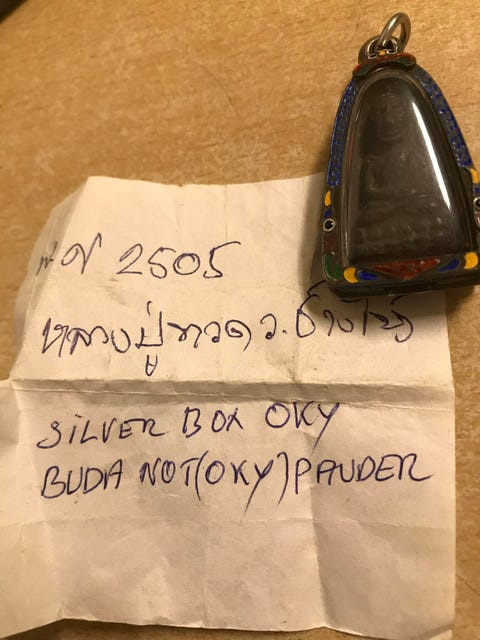 พ.ศ 2505
หลวงปู่ทวด ว.ช้างให้
SILVER BOX OKY
BUDA NOT(OKY)PAUDER